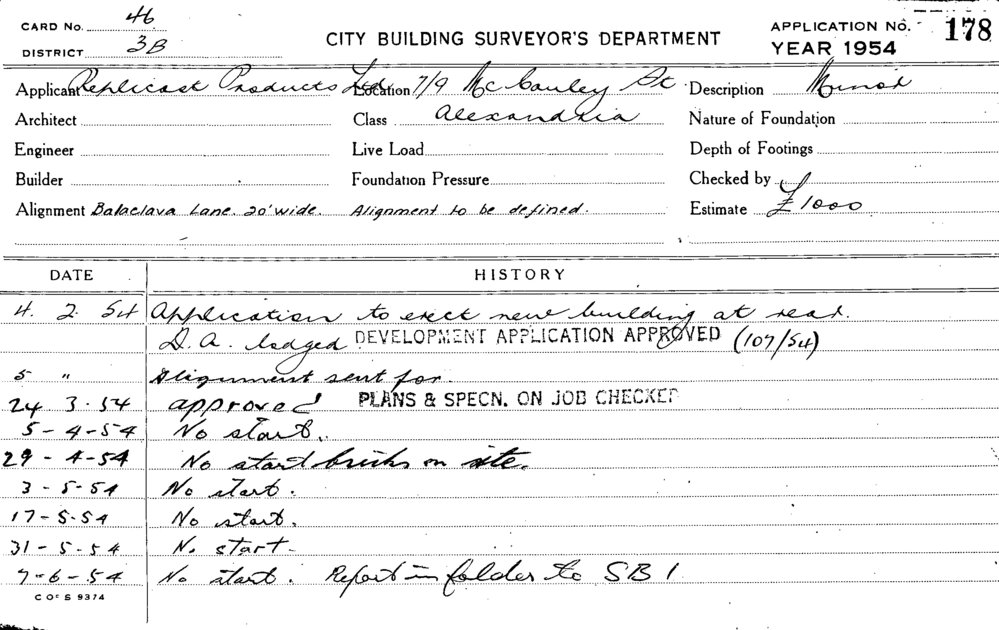 CARD No. 46
DISTRICT 3B
CITY BUILDING SURVEYOR'S DEPARTMENT
APPLICATION No. 178
YEAR 1954
Applicant Replicast Products Ltd Location 7/9 McCauley St Description Minor
Architect Class Alexandria Nature of Foundation
Engineer Live Load Depth of Footings
Builder Foundation Pressure Checked by
Alignment Balaclava Lane. 20' wide. Alignment to be defined. Estimate £1000
DATE HISTORY
4. 2. 54 Application to erect new building at rear.
D.A. lodged DEVELOPMENT APPLICATION APPROVED (107/54)
5 " Alignment sent for.
24 3.54 approved PLANS & SPECN. ON JOB CHECKED
5-4-54 No start.
29-4-54 No start bricks on site.
3-5-54 No start.
17-5-54 No start.
31-5-54 No start-
7-6-54 No start. Report in folder to SB1
C OF S 9374